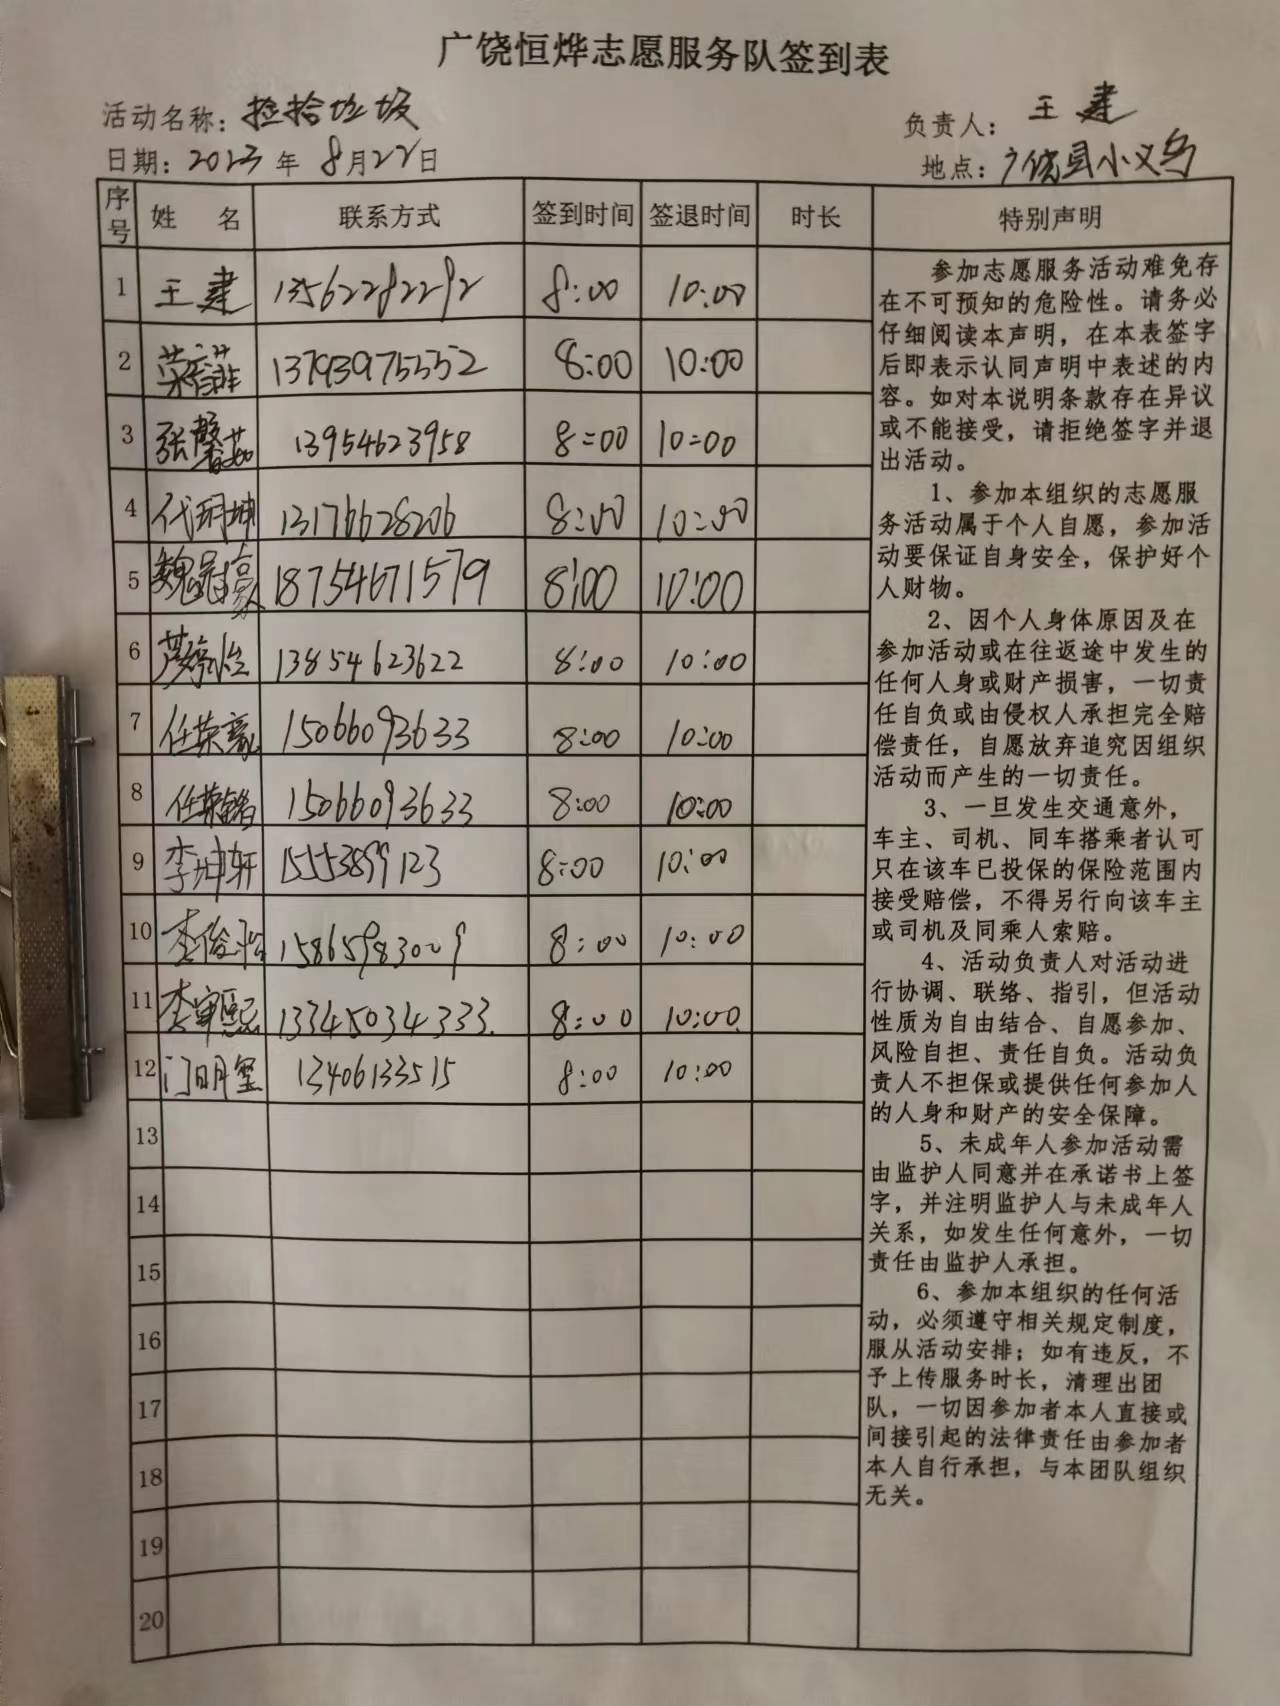 广饶恒烨志愿服务队签到表
活动名称：捡拾垃圾 负责人：王建
日期：2023年8月22日 地点：广饶县小义乌
序号 姓名 联系方式 签到时间 签退时间 时长 特别声明
1 王建 13562282292 8:00 10:00
2 13793975552 8:00 10:00
3 张馨茹 13954623958 8:00 10:00
4 代玥坤 13176628206 8:00 10:00
5 魏 18754671579 8:00 10:00
6 13854623622 8:00 10:00
7 任荣豪 15066093633 8:00 10:00
8 任荣铭 15066093633 8:00 10:00
9 李坤轩 15153899123 8:00 10:00
10 李俊 15865983009 8:00 10:00
11 李 13345034333. 8:00 10:00
12 门明玺 13406133515 8:00 10:00
13
14
15
16
17
18
19
20
参加志愿服务活动难免存
在不可预知的危险性。请务必
仔细阅读本声明，在本表签字
后即表示认同声明中表述的内
容。如对本说明条款存在异议
或不能接受，请拒绝签字并退
出活动。
1、参加本组织的志愿服
务活动属于个人自愿，参加活
动要保证自身安全，保护好个
人财物。
2、因个人身体原因及在
参加活动或在往返途中发生的
任何人身或财产损害，一切责
任自负或由侵权人承担完全赔
偿责任，自愿放弃追究因组织
活动而产生的一切责任。
3、一旦发生交通意外，
车主、司机、同车搭乘者认可
只在该车已投保的保险范围内
接受赔偿，不得另行向该车主
或司机及同乘人索赔。
4、活动负责人对活动进
行协调、联络、指引，但活动
性质为自由结合、自愿参加、
风险自担、责任自负。活动负
责人不担保或提供任何参加人
的人身和财产的安全保障。
5、未成年人参加活动需
由监护人同意并在承诺书上签
字，并注明监护人与未成年人
关系，如发生任何意外，一切
责任由监护人承担。
6、参加本组织的任何活
动，必须遵守相关规定制度，
服从活动安排；如有违反，不
予上传服务时长，清理出团
队，一切因参加者本人直接或
间接引起的法律责任由参加者
本人自行承担，与本团队组织
无关。